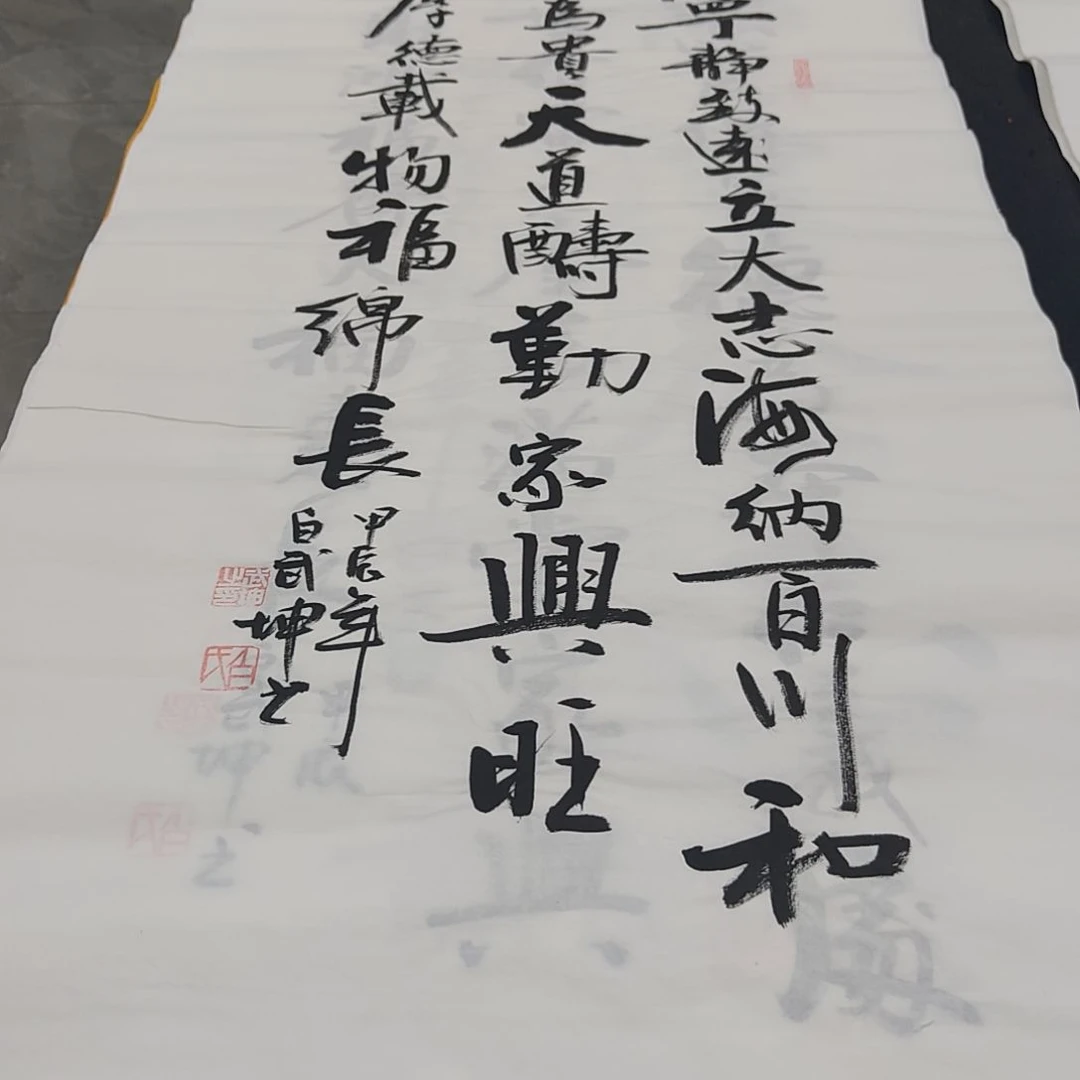 寧靜致遠立大志海納百川和
為貴天道酬勤家興旺
厚德載物福綿長
甲辰年
白武坤书